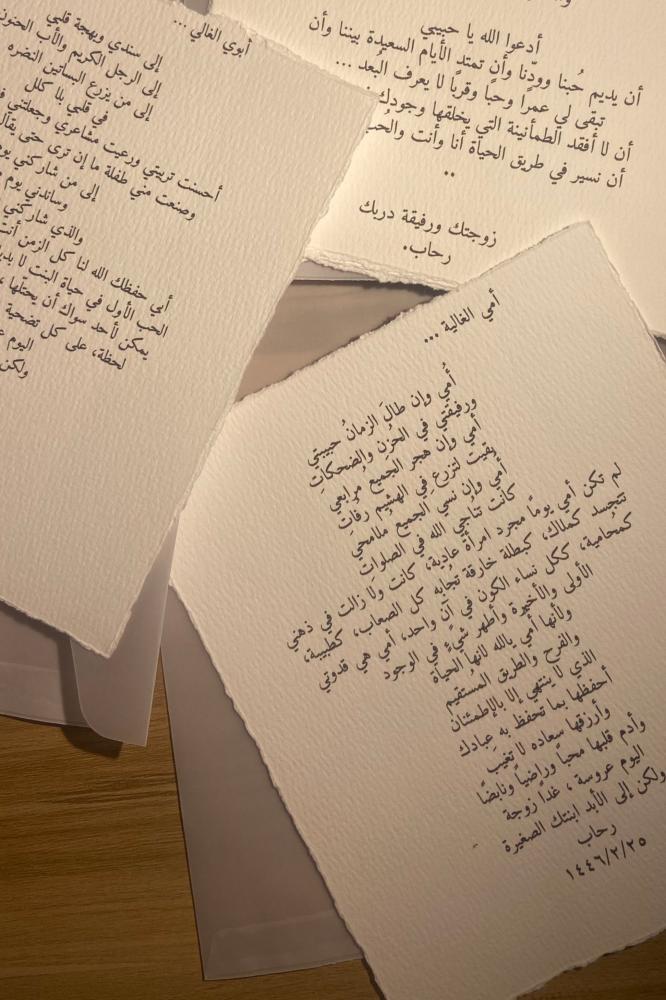 أدعوا الله يا حبيبي
أن يديم حُبنا وودّنا وأن تمتد الأيام السعيدة بيننا وأن
تبقى لي عمرًا وحبًا وقربًا لا يعرف البعد ...
أن لا أفقد الطمأنينة التي يخلقها وجودك
أن نسير في طريق الحياة أنا وأنت والحُب
..
زوجتك ورفيقة دربك
رحاب.
أبوي الغالي ...
إلى سندي وبهجة قلبي
إلى الرجل الكريم والأب الحنون
إلى من يزرع البساتين النضره
في قلبي بلا كلل
أحسنت تربيتي ورعيت مشاعري وجعلتني
وصنعت مني طفلة ما إن ترى حتى يقال
إلى من شاركني
وساندني يوم
والذي شاركني
أبي حفظك الله لنا كل الزمن أنت
الحب الأول في حياة البنت لا
يمكن لأحد سواك أن يحتلها
لحظة، على كل تضحية
اليوم
ولكن
أمي الغالية ...
أُمي وإن طالَ الزمانُ حبيبتي
ورفيقتي في الحُزنِ والضحكاتِ
أمي وإن هجر الجميع مرابعي
بقيت لتزرع في الهشيم رفات
أمي وإن نسي الجميع ملامحي
كانت تناجي الله في الصلواتِ
لم تكن أمي يومًا مجرد امرأة عادية، كانت ولا زالت في ذهني
تتجسد كملاك، كبطلة خارقة تجابه كل الصعاب، كطبيبة،
كمحامية، ككل نساء الكون في آن واحد، أمي هي قدوتي
الأولى والأخيرة وأطهر شيءٍ في الوجود
ولأنها أمي يالله لانها الحياة
والفرح والطريق المُستقيم
الذي لا ينتهي إلا بالإطمئنان
أحفظها بما تحفظ به عبادك
وأرزقها سعاده لا تغيب
وأدم قلبها محبًا وراضيًا ونابضًا
اليوم عروسة ، غداً زوجة
ولكن إلى الأبد ابنتك الصغيرة
رحاب
١٤٤٦/٢/٢٥